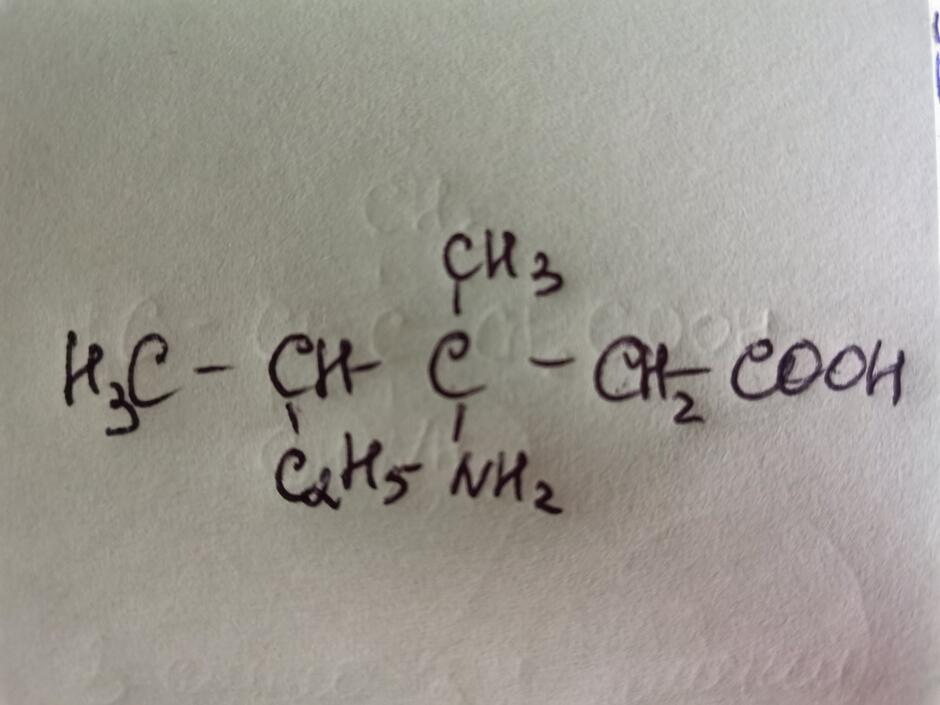 CH3
H3C - CH - C - CH2 - COOH
C2H5 NH2